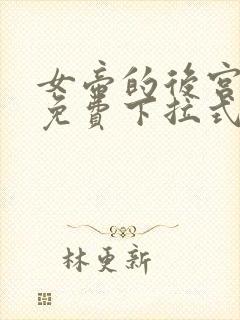 女帝的後宮
免費下拉式
林更新